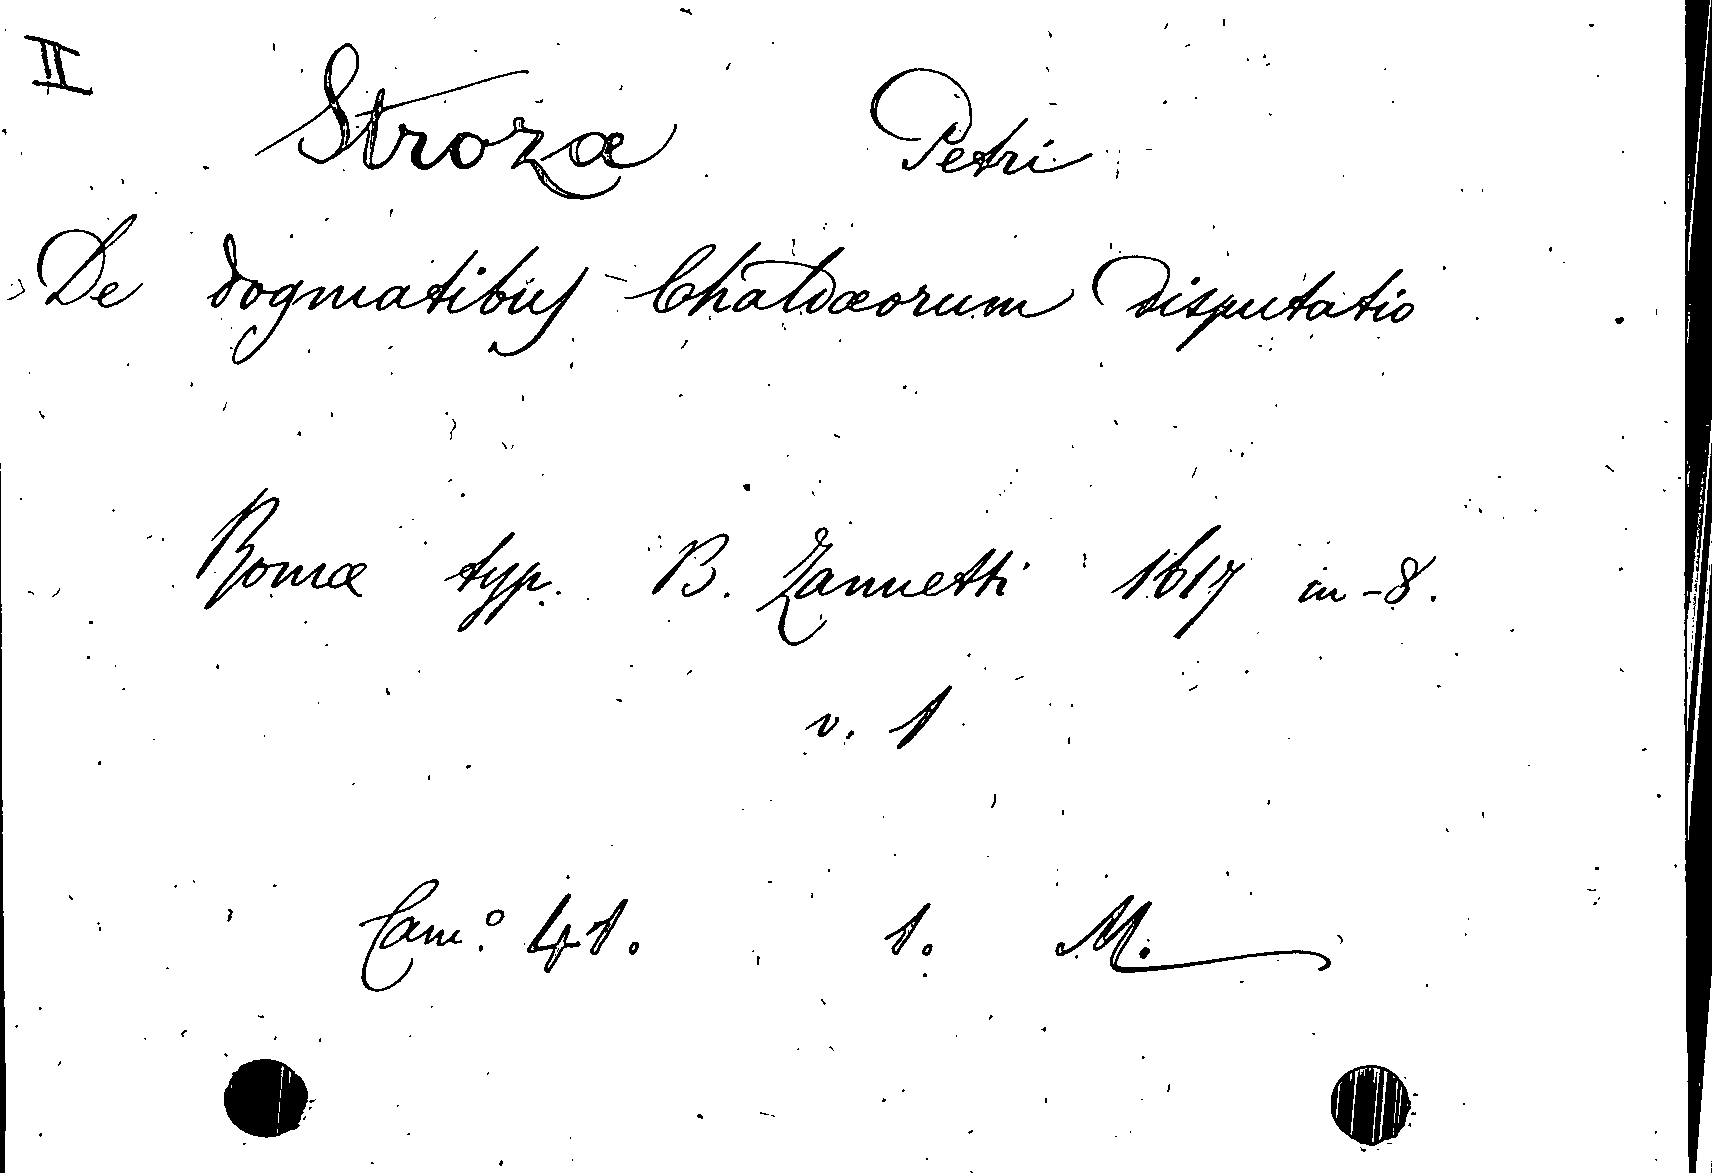 II
Strozæ Petri
De dogmatibus Chaldæorum disputatio
Romæ typ. B. Zannetti 1617 in-8.
v. 1
Cam.° 41. 1. M.